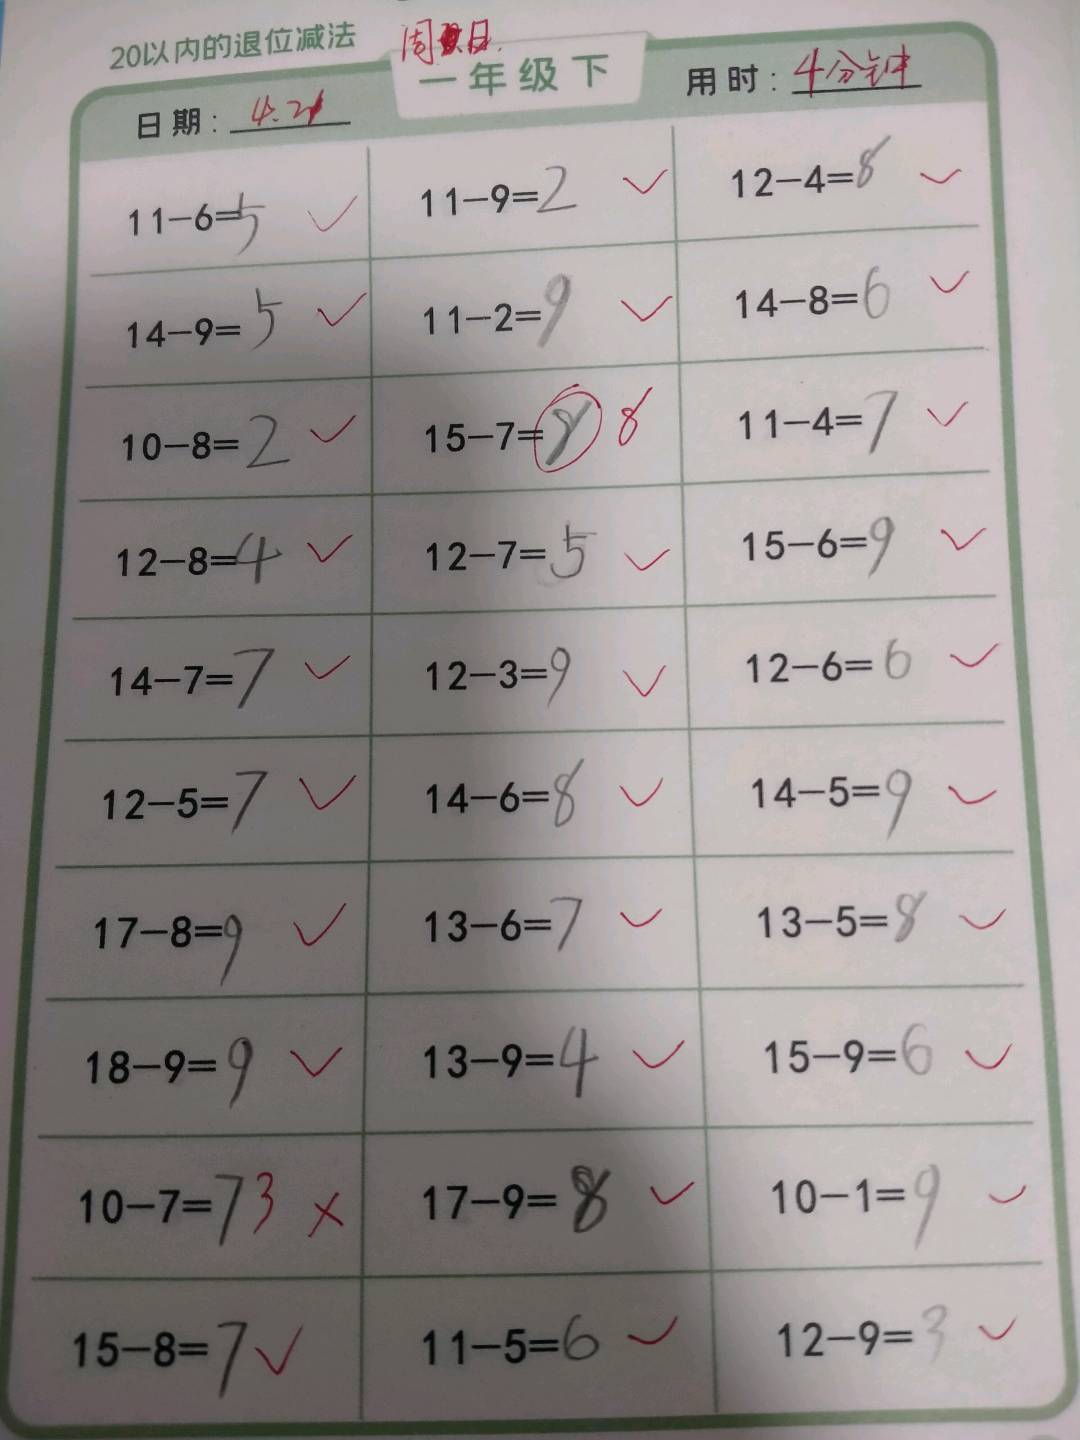 20以内的退位减法 周日
一年级下
日期：4.21 用时：4分钟
11－6=5 11－9=2 12－4=8
14－9=5 11－2=9 14－8=6
10－8=2 15－7=8 8 11－4=7
12－8=4 12－7=5 15－6=9
14－7=7 12－3=9 12－6=6
12－5=7 14－6=8 14－5=9
17－8=9 13－6=7 13－5=8
18－9=9 13－9=4 15－9=6
10－7=7 3 17－9=8 10－1=9
15－8=7 11－5=6 12－9=3